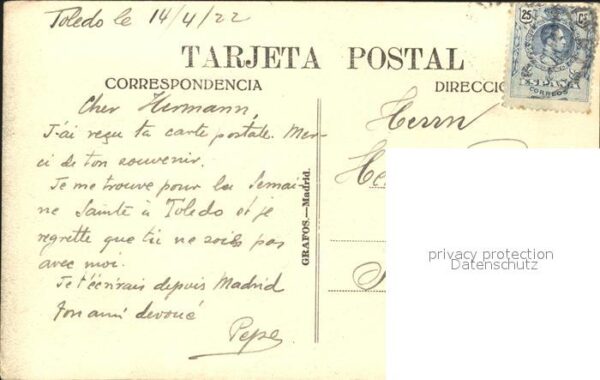 Toledo le 14/4/22
25 CS
TARJETA POSTAL
CORRESPONDENCIA
DIRECCIO
CORREOS
Cher Hermann,
J'ai reçu ta carte postale. Mer-
ci de ton souvenir.
Je me trouve pour la Semai-
ne Sainte à Toledo et je
regrette que tu ne sois pas
avec moi.
Je t'écrirais depuis Madrid
Ton ami devoué
Pepe
GRAFOS.—Madrid.
Herrn
He
privacy protection
Datenschutz